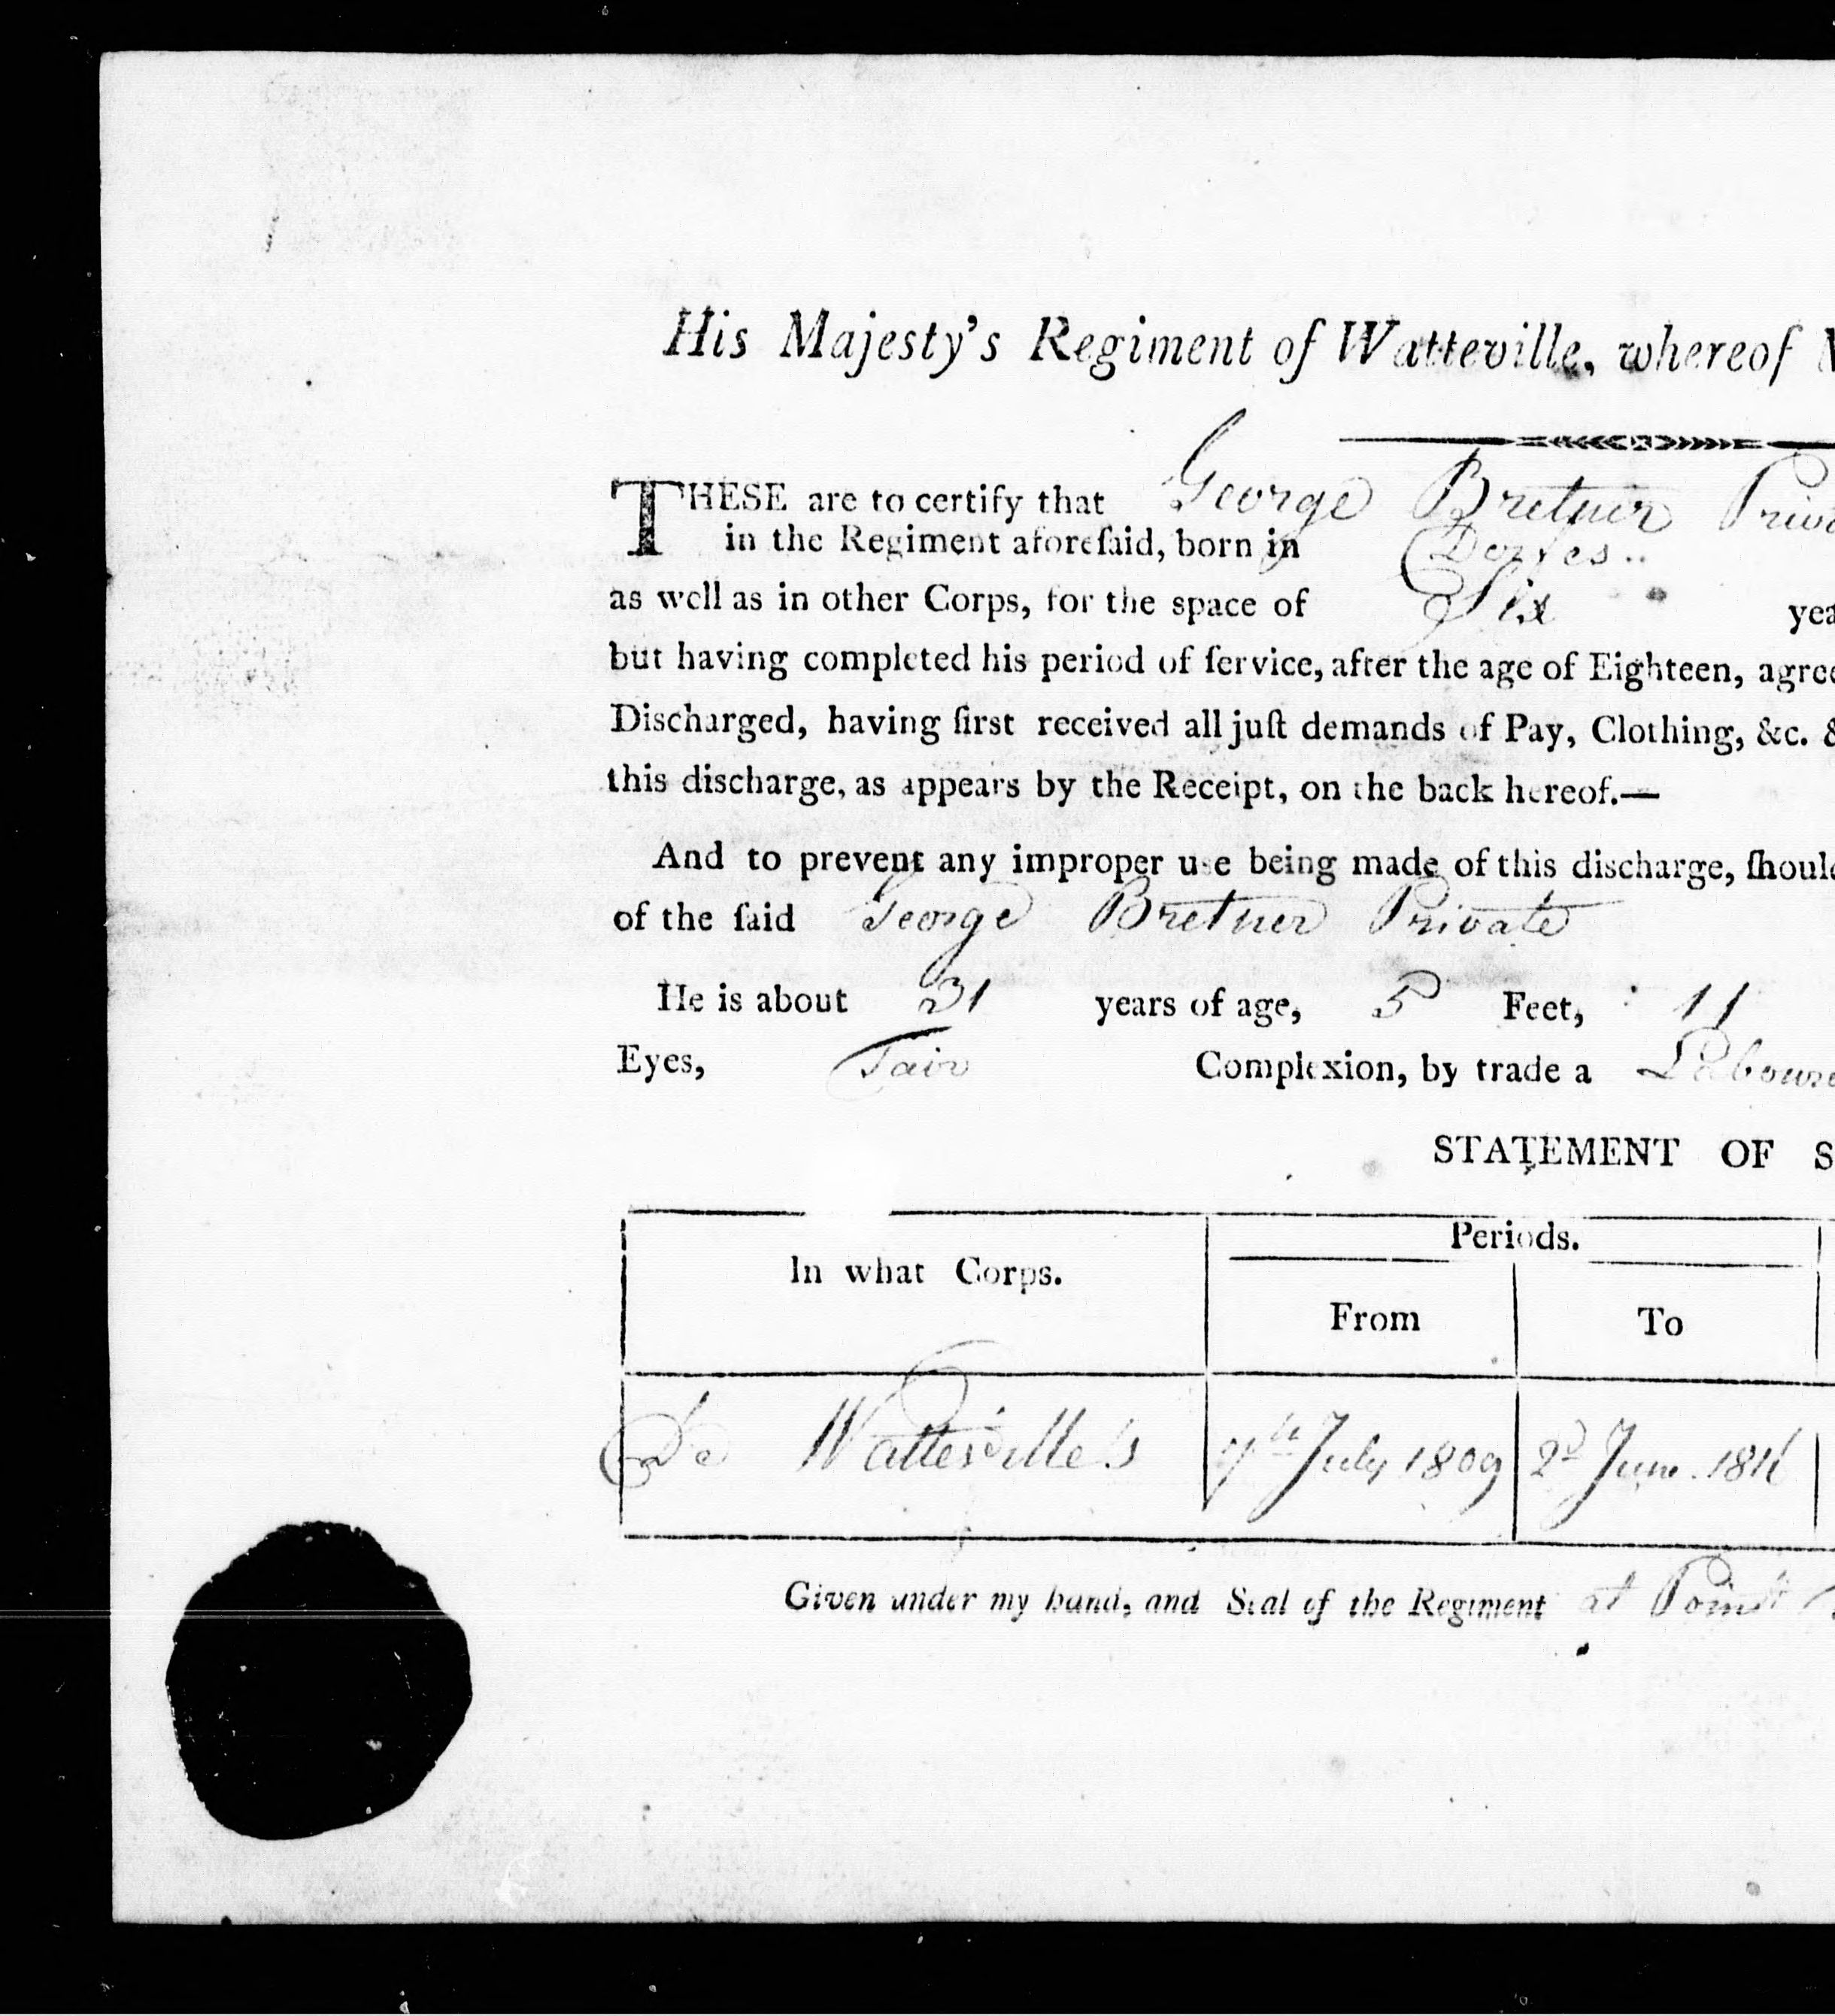 His Majesty's Regiment of Watteville, whereof
THESE are to certify that George Bretner Priva
in the Regiment aforeſaid, born in
as well as in other Corps, for the space of Six yea
but having completed his period of ſervice, after the age of Eighteen, agree
Discharged, having firſt received all juſt demands of Pay, Clothing, &c. &
this discharge, as appears by the Receipt, on the back hereof.—
And to prevent any improper use being made of this discharge, ſhould
of the ſaid George Bretner Private
He is about 31 years of age, 5 Feet, 11
Eyes, Fair Complexion, by trade a Laboure
STATEMENT OF S
In what Corps. Periods.
From To
De Watteville's 7th July 1809 2d June 1816
Given under my hand, and Seal of the Regiment at Point